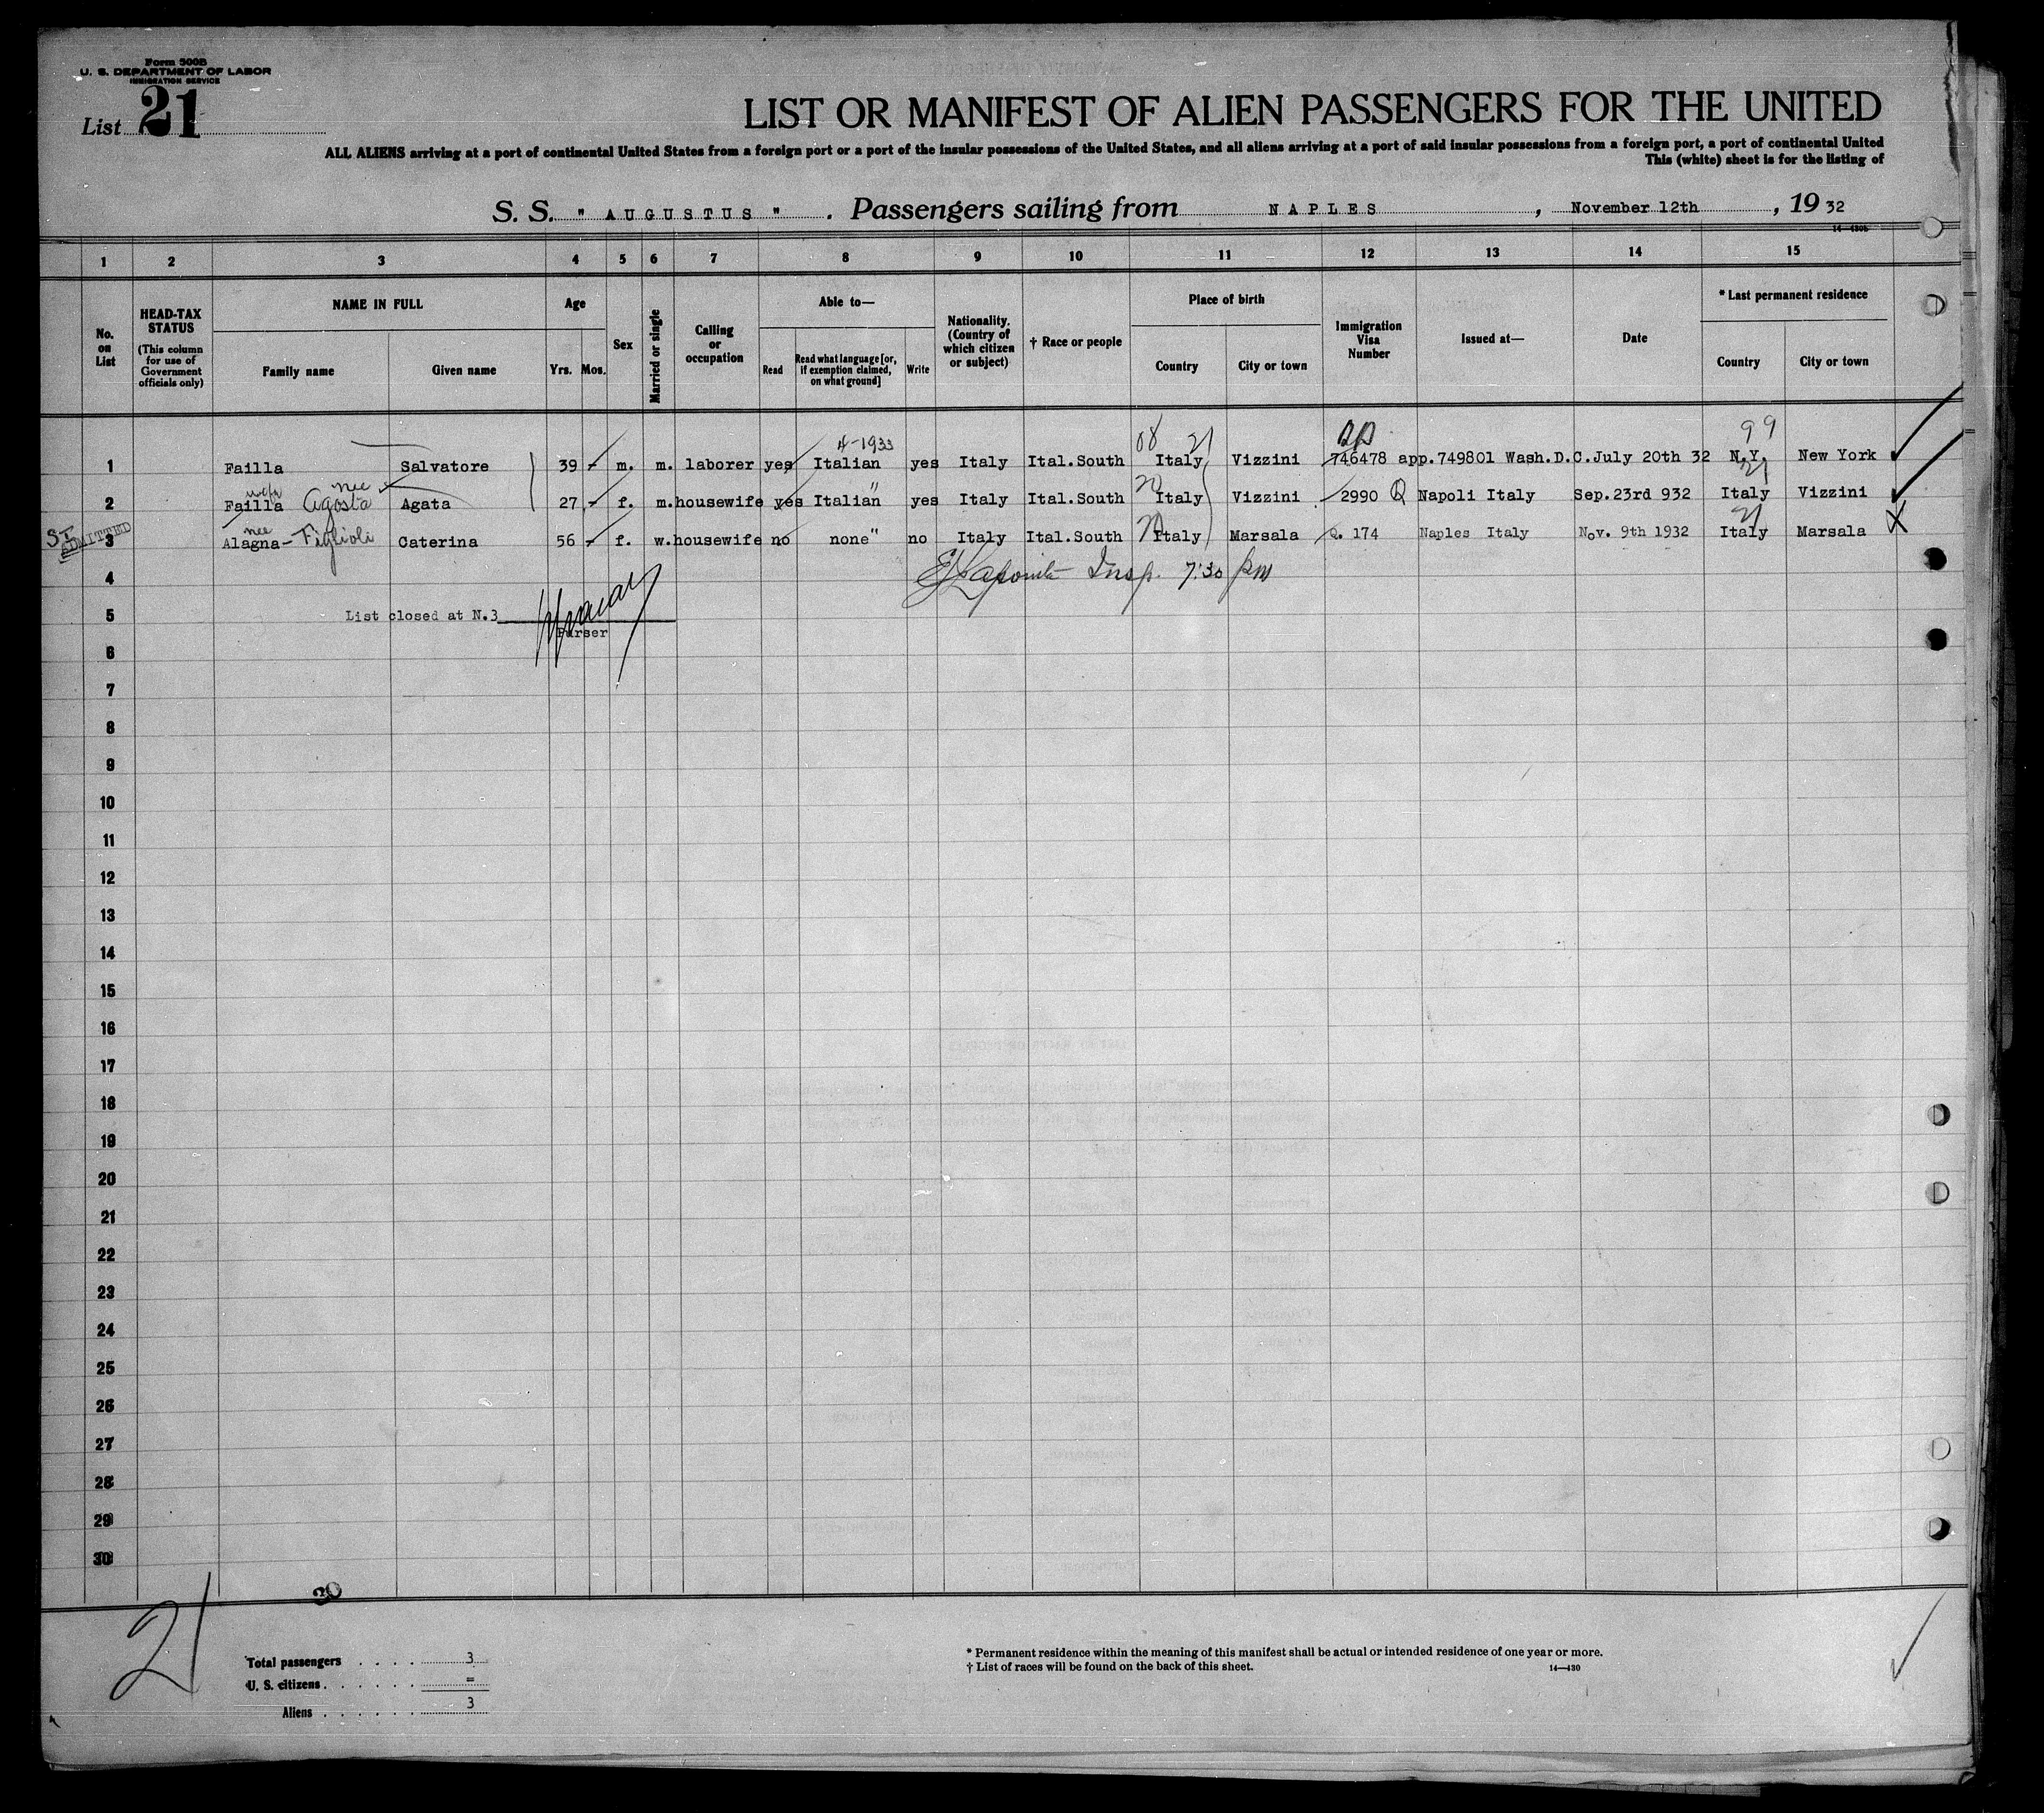 Form 500B
U. S. DEPARTMENT OF LABOR
IMMIGRATION SERVICE
List 21
LIST OR MANIFEST OF ALIEN PASSENGERS FOR THE UNITED
ALL ALIENS arriving at a port of continental United States from a foreign port or a port of the insular possessions of the United States, and all aliens arriving at a port of said insular possessions from a foreign port, a port of continental United
This (white) sheet is for the listing of
S. S. " AUGUSTUS " . Passengers sailing from NAPLES , November 12th , 19 32
14—430b
1 2 3 4 5 6 7 8 9 10 11 12 13 14 15
No. on List
HEAD-TAX STATUS
(This column for use of Government officials only)
NAME IN FULL
Family name Given name
Age
Yrs. Mos.
Sex
Married or single
Calling or occupation
Able to—
Read Read what language [or, if exemption claimed, on what ground] Write
Nationality. (Country of which citizen or subject)
† Race or people
Place of birth
Country City or town
Immigration Visa Number
Issued at—
Date
* Last permanent residence
Country City or town
4-1933 08 21 99
1 Failla Salvatore 39 - m. m. laborer yes Italian yes Italy Ital.South Italy Vizzini 746478 app.749801 Wash.D.C. July 20th 32 N.Y. New York
wife nee 20 21
2 Failla Agosta Agata 27 - f. m. housewife yes Italian" yes Italy Ital.South Italy Vizzini 2990 Q Napoli Italy Sep.23rd 932 Italy Vizzini
SI ADMITTED nee 21
3 Alagna- Figlioli Caterina 56 - f. w. housewife no none" no Italy Ital.South Italy Marsala Q. 174 Naples Italy Nov. 9th 1932 Italy Marsala X
4 Insp. 7:30 pm
5 List closed at N.3
Purser
6
7
8
9
10
11
12
13
14
15
16
17
18
19
20
21
22
23
24
25
26
27
28
29
30
30
21
Total passengers . . . . 3
U. S. citizens . . . . . . =
Aliens . . . . . . 3
* Permanent residence within the meaning of this manifest shall be actual or intended residence of one year or more.
† List of races will be found on the back of this sheet. 14—430